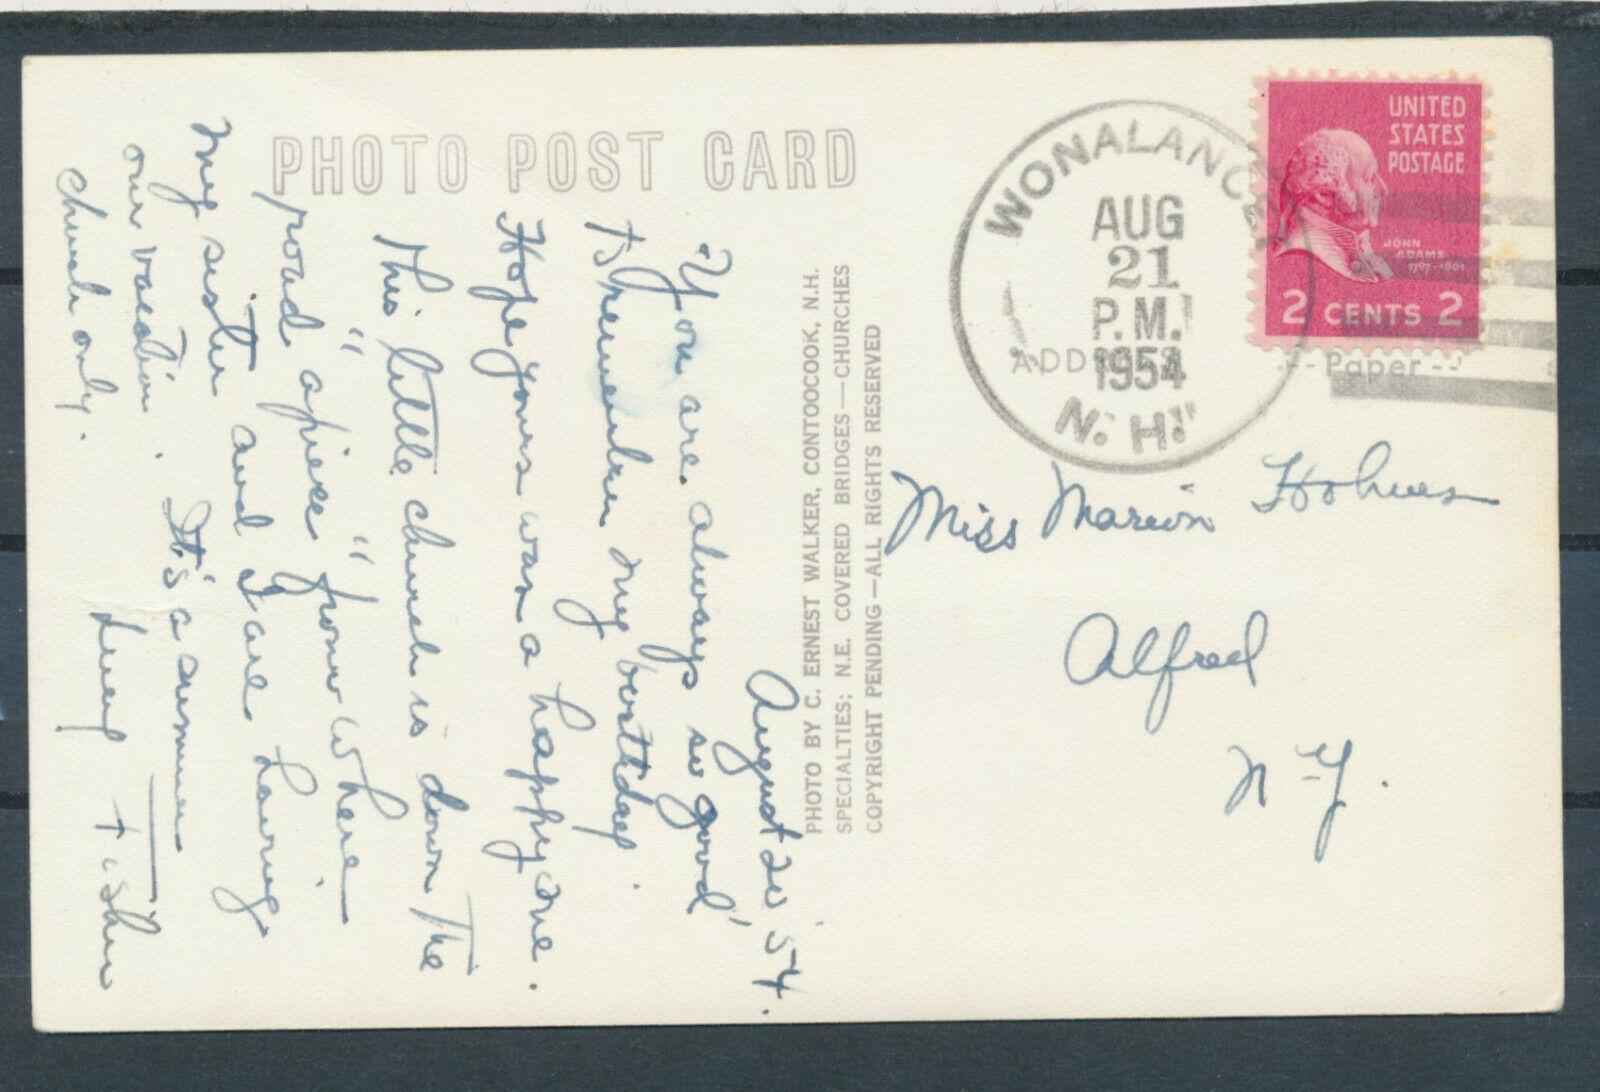 PHOTO POST CARD
August 20 '54.
You are always so good
to remember my birthday
Hope yours was a happy one.
This little church is down the
road "a piece" from where
my sister and I are having
our vacation. It's a summer
church only.
Lucy
PHOTO BY C. ERNEST WALKER, CONTOOCOOK, N.H.
SPECIALTIES: N.E. COVERED BRIDGES—CHURCHES
COPYRIGHT PENDING—ALL RIGHTS RESERVED
WONALANCET
AUG
21
P.M.
1954
N.H.
UNITED
STATES
POSTAGE
JOHN
ADAMS
1797-1801
2 CENTS 2
ADDRESS
--Paper--
Miss Marion Holmes
Alfred
N.Y.